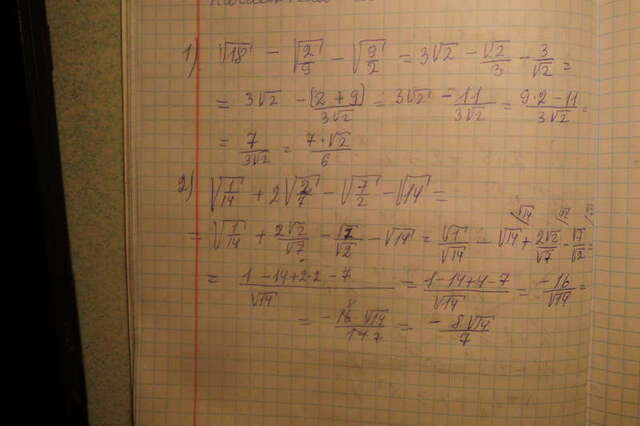 1) √18 - √(2/9) - √(9/2) = 3√2 - √2/3 - 3/√2 =
= 3√2 - (2+9)/(3√2) = 3√2 - 11/(3√2) = (9·2-11)/(3√2) =
= 7/(3√2) = 7·√2/6
2) √(1/14) + 2√(2/7) - √(7/2) - √14 =
= √(1/14) + 2√2/√7 - √7/√2 - √14 = √1/√14 - √14 + 2√2/√7 - √7/√2 =
= (1-14+2·2-7)/√14 = (1-14+4-7)/√14 = -16/√14 =
= -16√14/14 = -8√14/7